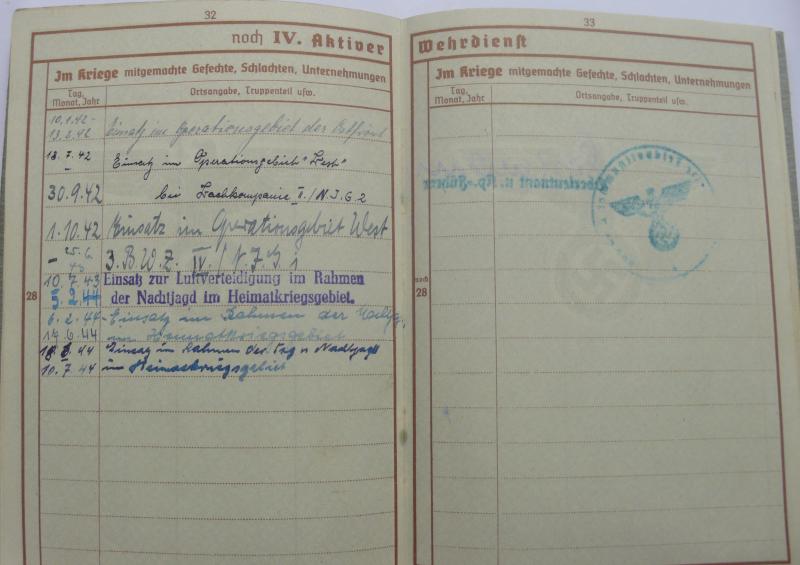 32
noch IV. Aktiver
Im Kriege mitgemachte Gefechte, Schlachten, Unternehmungen
Tag, Monat, Jahr
Ortsangabe, Truppenteil usw.
10.1.42 -
13.2.42 Einsatz im Operationsgebiet der Ostfront
18.7.42 Einsatz im Operationsgebiet "West"
30.9.42 bei II./N.J.G 2
1.10.42 Einsatz im Operationsgebiet West
- 25.6. 43 3. IV./N.J.G 1
10.7.43 Einsatz zur Luftverteidigung im Rahmen
28 5.2.44 der Nachtjagd im Heimatkriegsgebiet.
6.2.44 - Einsatz im Rahmen der
17.6.44 im Heimatkriegsgebiet
44 Einsatz im Rahmen der Tag u Nachtjagd
10.7.44 im Heimatkriegsgebiet
33
Wehrdienst
Im Kriege mitgemachte Gefechte, Schlachten, Unternehmungen
Tag, Monat, Jahr
Ortsangabe, Truppenteil usw.
Oberleutnant u. Kp.-Führer
noch
28